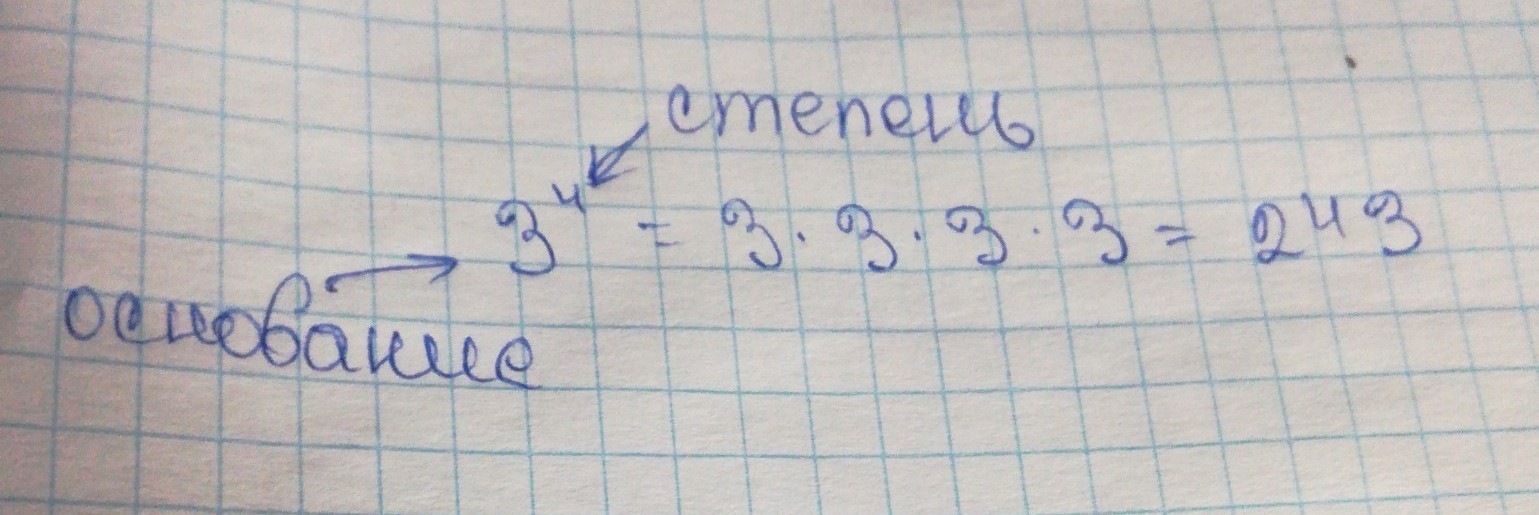 степень
3⁴ = 3 · 3 · 3 · 3 = 243
основание